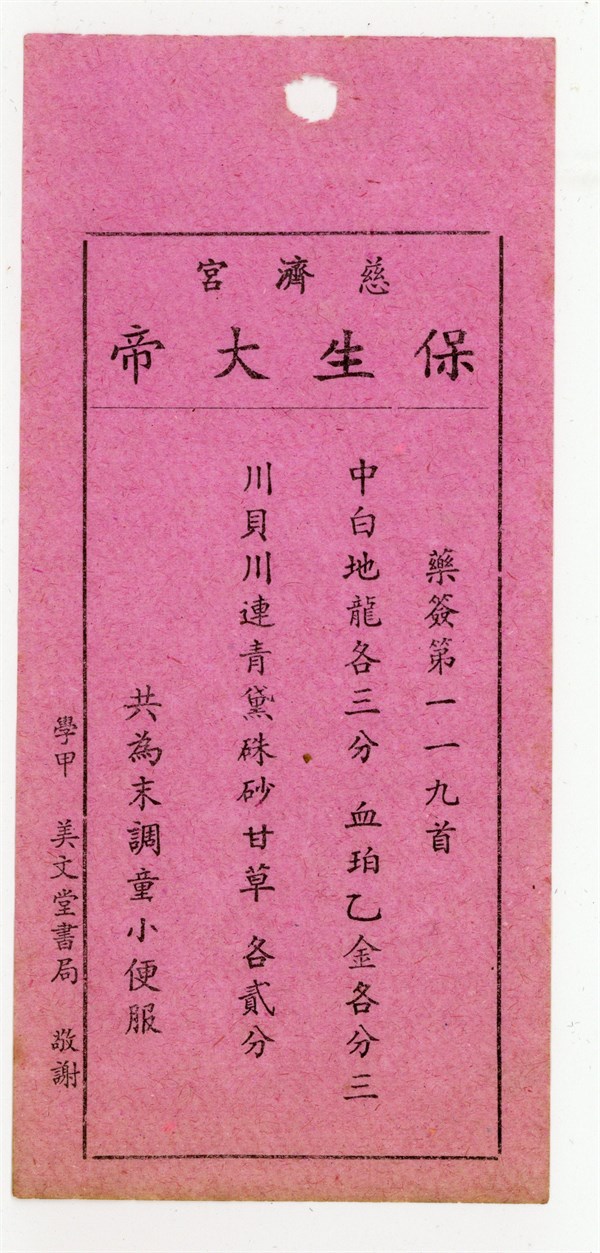 慈濟宮
保生大帝
藥簽第一一九首
中白地龍各三分 血珀乙金各分三
川貝川連青黛硃砂甘草 各貳分
共為末調童小便服
學甲 美文堂書局 敬謝